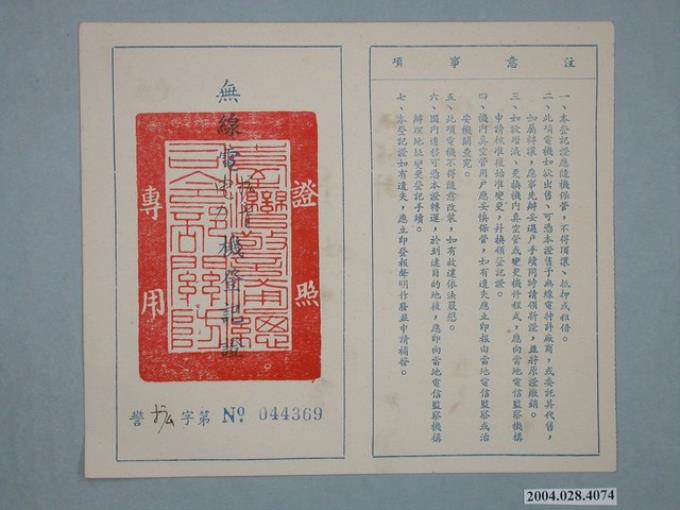 注意事項
一、本登記證應隨機保管,不得頂讓、抵押或租借。
二、此項電機如欲出售、可憑本證售予無線電特許廠商,或委託其代售,
如屬轉讓,應事先辦妥過戶手續同時請領新證,並將原證繳銷。
三、如欲增減、更換機內真空管或變更機件程式,應向當地電信監察機構
申請核准後始准變更,并換領登記證。
四、機內真空管用戶應妥慎保管,如有遺失應立即報由當地電信監察或治
安機關查究。
五、此項電機不得隨意改裝,如有故違依法嚴懲。
六、國內遷移可憑本證轉運,於到達目的地後,應即向當地電信監察機構
辦理地址變更登記手續。
七、本登記證如有遺失,應立即登報聲明作廢並申請補發。
無線電機登記證
擴音
證照
專用
臺灣警備總
司令部關防
警 字第 № 044369
2004.028.4074